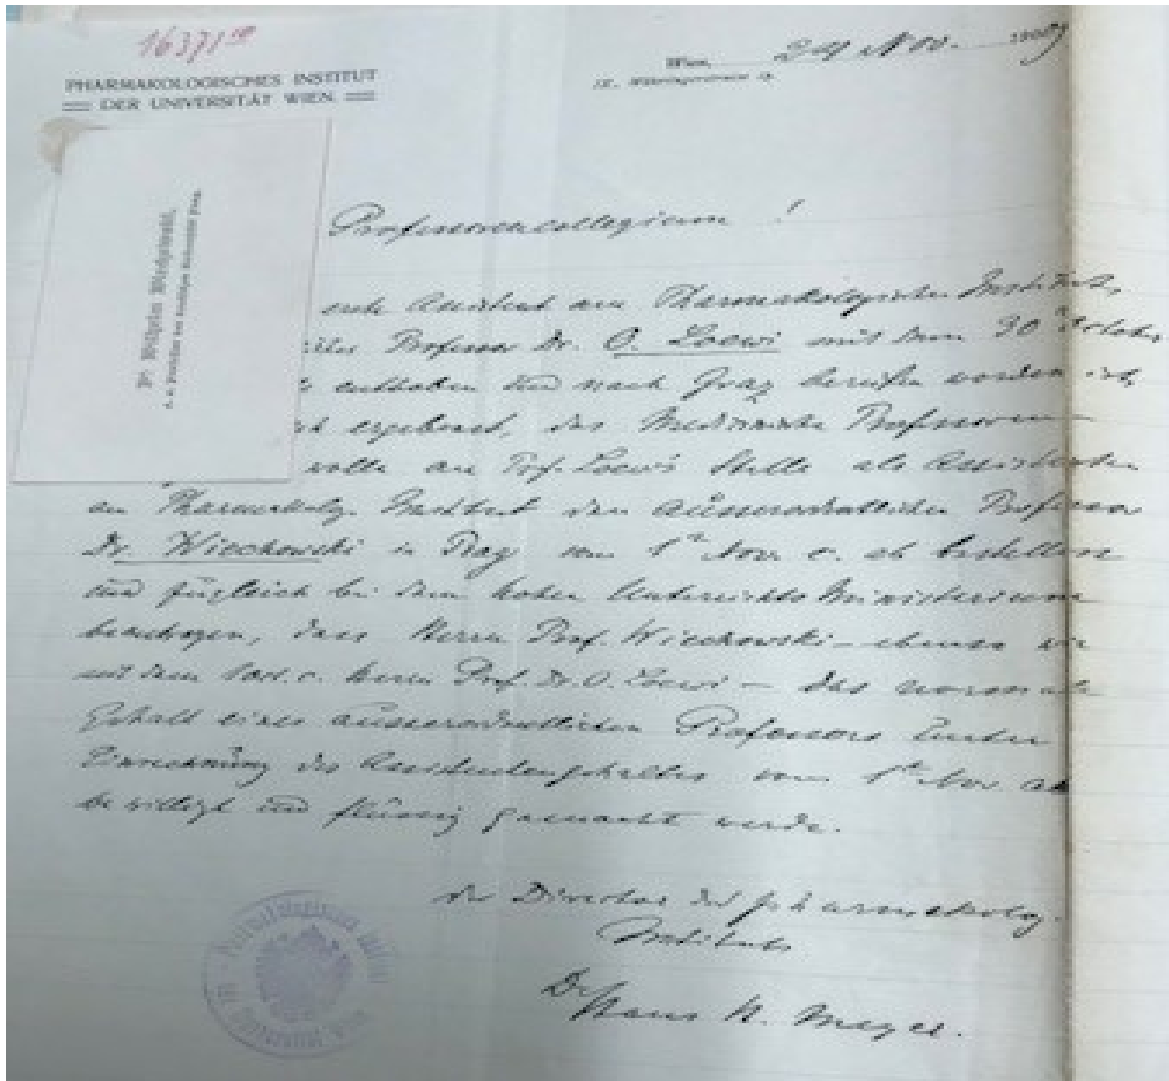 16371
PHARMAKOLOGISCHES INSTITUT
DER UNIVERSITÄT WIEN.
Wien, 24 Nov. 1909
IX., Währingerstrasse 13
Dr. Wilhelm Wiechowski,
a. ö. Professor der deutschen Universität Prag.
Professorencollegium!
erste Assistent am Pharmakologischen Institute,
Professor Dr. O. Loewi mit dem 30 October
enthoben und nach Graz berufen worden ist,
ergebenst, das Medizinische Professoren-
wolle an Prof. Loewi's Stelle als Assistenten
am Pharmakolog. Institut den ausserordentlichen Professor
Dr. Wiechowski in Prag vom 1ten Nov. c. ab bestellen
und zugleich bei dem hohen Unterrichts Ministerium
beantragen, dass Herrn Prof. Wiechowski – ebenso wie
Herrn Prof. Dr. O. Loewi – das normale
Gehalt eines ausserordentlichen Professors unter
Einrechnung des Assistentengehaltes vom 1ten Nov. ab
bewilligt und flüssig gemacht werde.
der Director des pharmakolog.
Instituts
Dr Hans H. Meyer.